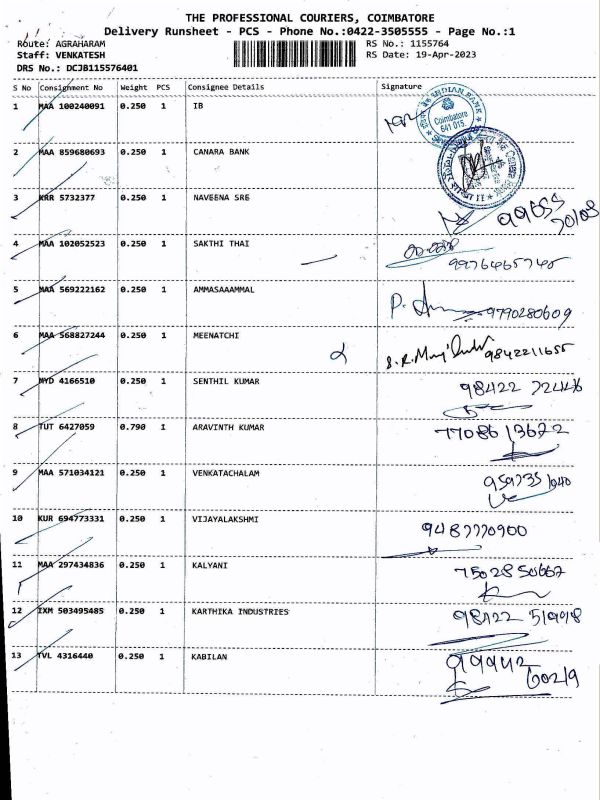 THE PROFESSIONAL COURIERS, COIMBATORE
Delivery Runsheet - PCS - Phone No.:0422-3505555 - Page No.:1
Route: AGRAHARAM RS No.: 1155764
Staff: VENKATESH RS Date: 19-Apr-2023
DRS No.: DCJB115576401
S No Consignment No Weight PCS Consignee Details Signature
1 MAA 100240091 0.250 1 IB
INDIAN BANK
Coimbatore
641 015
2 MAA 859680693 0.250 1 CANARA BANK
3 KRR 5732377 0.250 1 NAVEENA SRE
4 MAA 102052523 0.250 1 SAKTHI THAI
9976465745
5 MAA 569222162 0.250 1 AMMASAAAMMAL
9790280609
6 MAA 568827244 0.250 1 MEENATCHI
9842211655
7 MYD 4166510 0.250 1 SENTHIL KUMAR
98422 72446
8 TUT 6427059 0.790 1 ARAVINTH KUMAR
7708613672
9 MAA 571034121 0.250 1 VENKATACHALAM
10 KUR 694773331 0.250 1 VIJAYALAKSHMI
9487770900
11 MAA 297434836 0.250 1 KALYANI
75028 50667
12 IXM 503495485 0.250 1 KARTHIKA INDUSTRIES
13 TVL 4316440 0.250 1 KABILAN
99942
60219